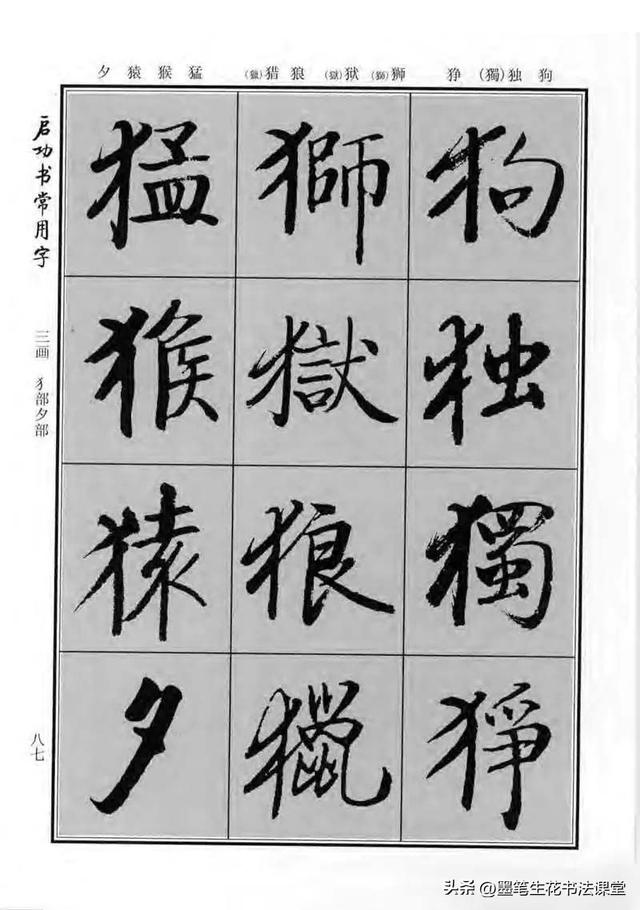 狗 独(獨) 狰 狮(獅) 狱(獄) 狼 猎(獵) 猛 猴 猿 夕
狗独獨猙
獅獄狼獵
猛猴猿夕
启功书常用字
三画 犭部夕部
八七
头条 @墨笔生花书法课堂